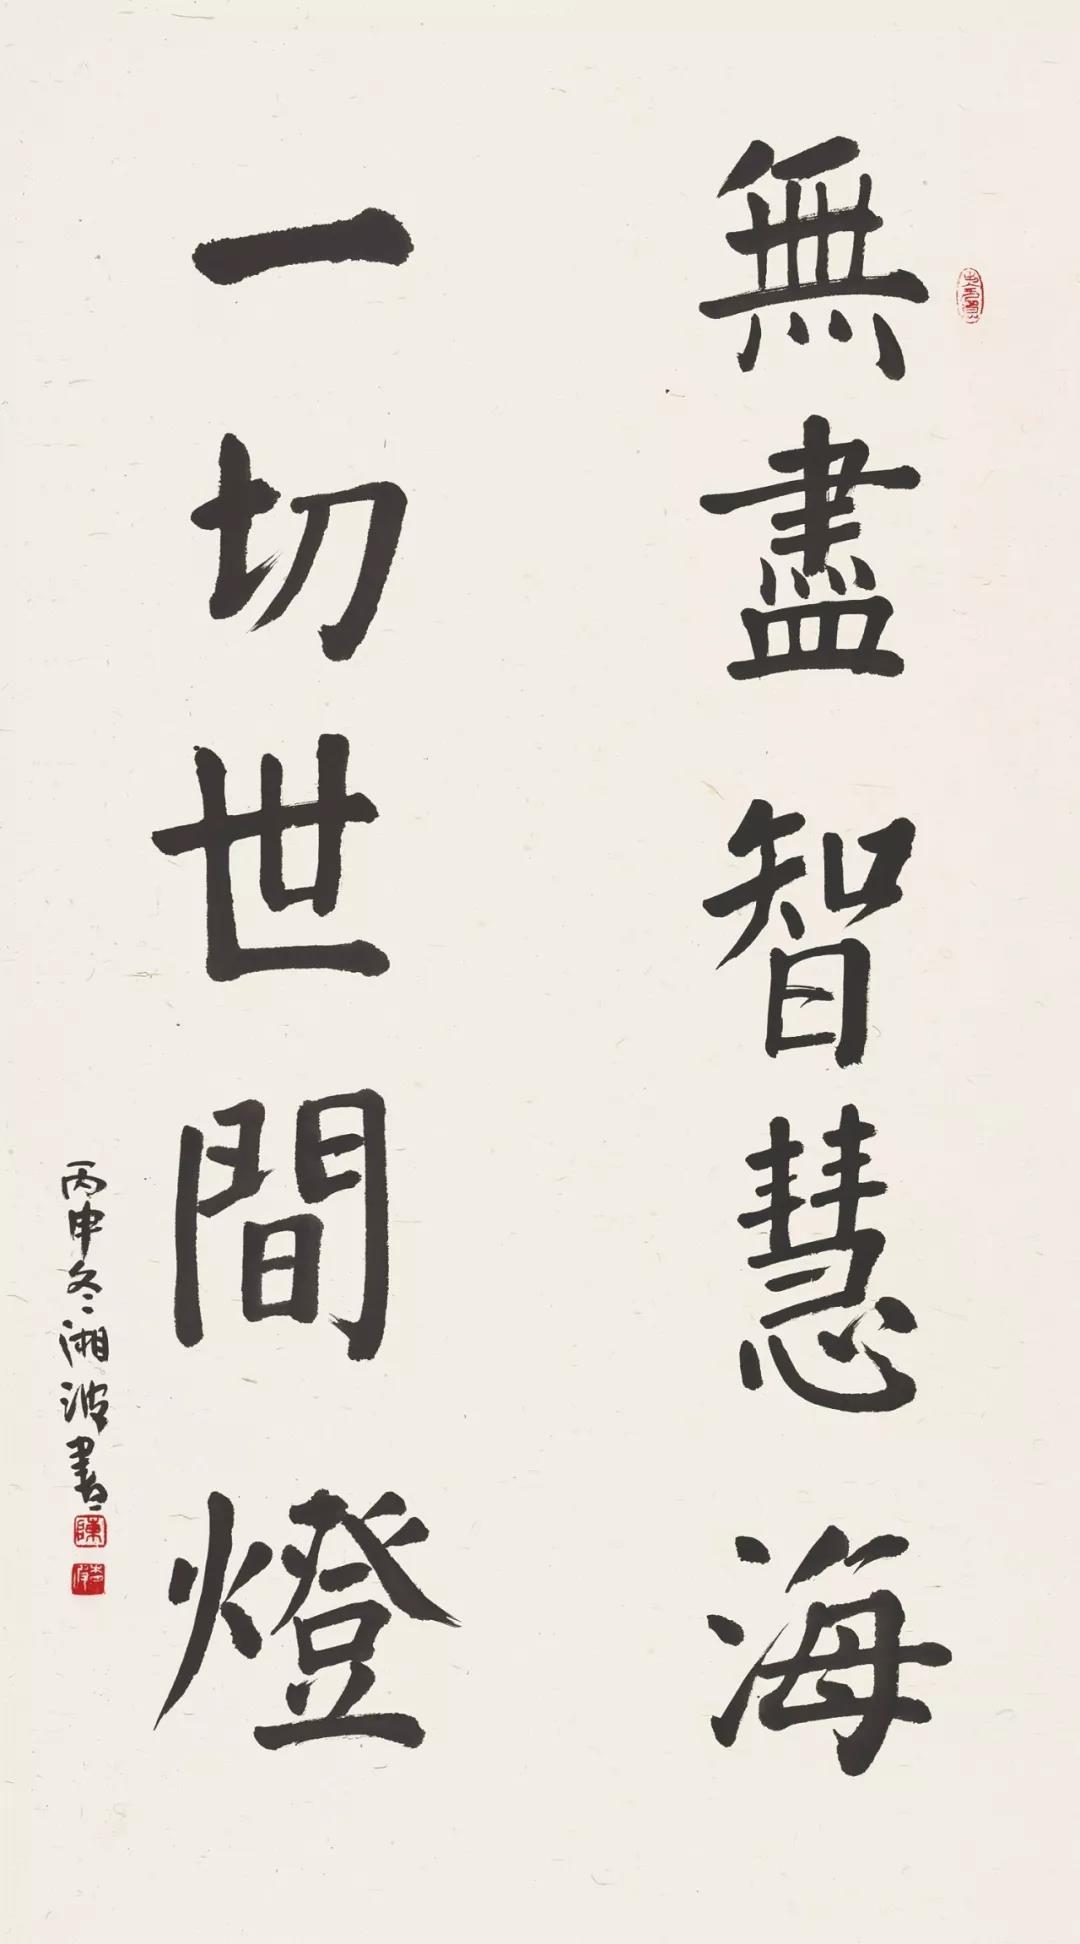 無盡智慧海
一切世間燈
丙申冬湘波書
陳